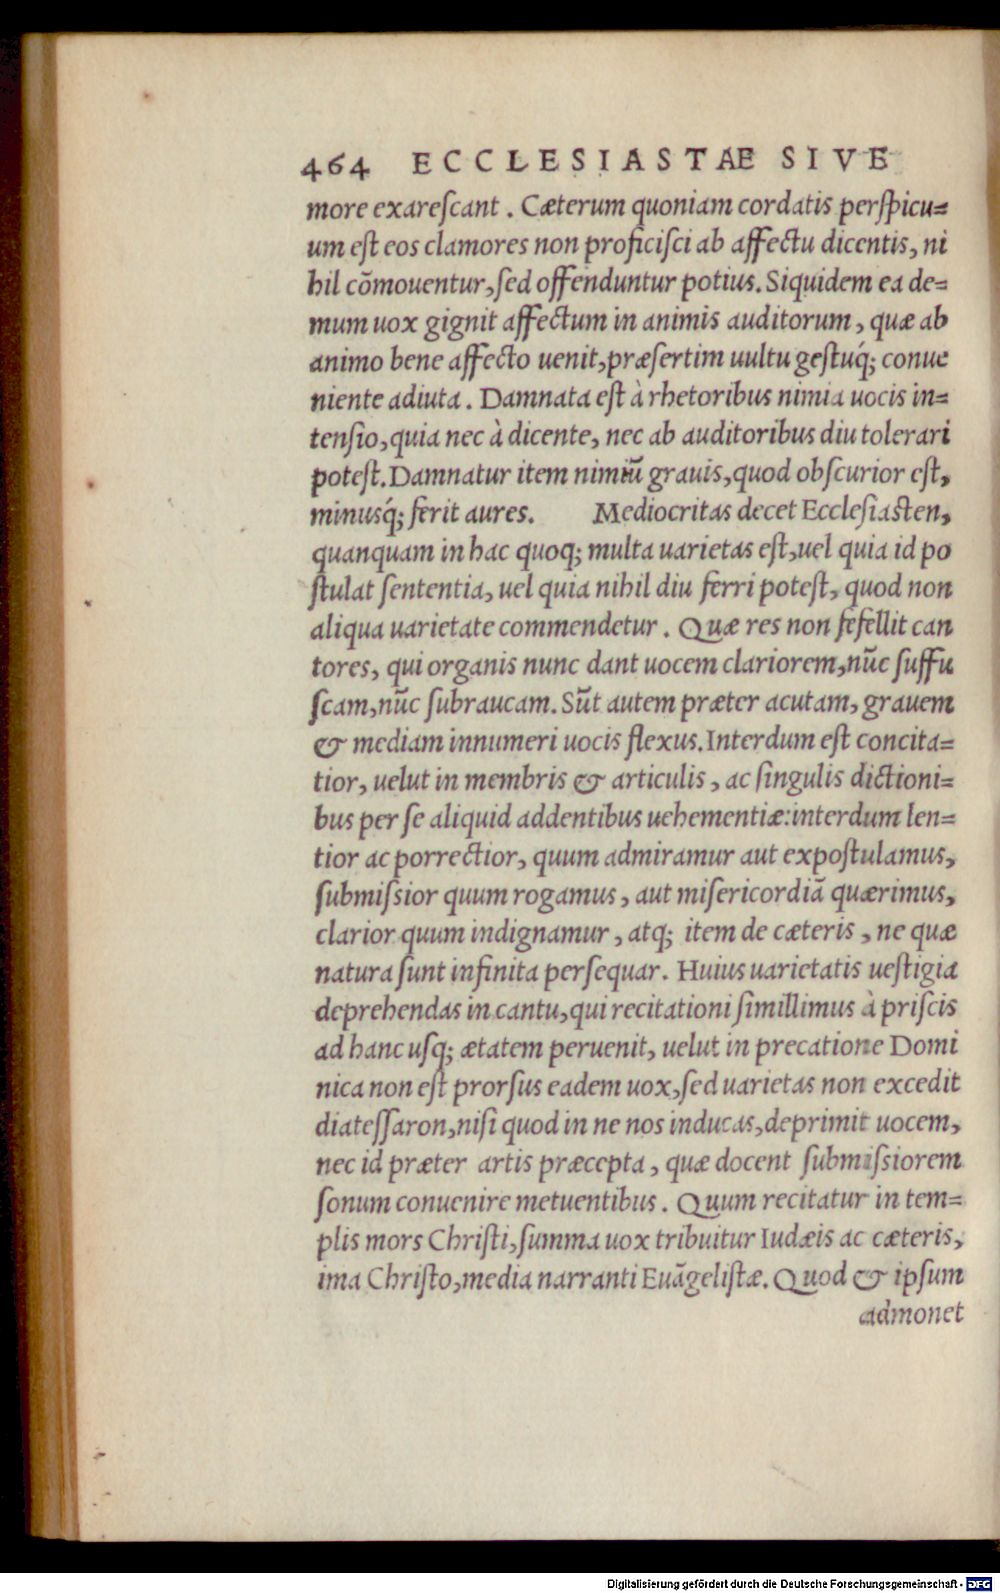 464 ECCLESIASTAE SIVE
more exareſcant . Cæterum quoniam cordatis perſpicu=
um eſt eos clamores non proficiſci ab affectu dicentis, ni
hil cõmouentur, ſed offenduntur potius. Siquidem ea de=
mum uox gignit affectum in animis auditorum, quæ ab
animo bene affecto uenit, præſertim uultu geſtuq́; conue
niente adiuta . Damnata eſt à rhetoribus nimia uocis in=
tenſio, quia nec à dicente, nec ab auditoribus diu tolerari
poteſt. Damnatur item nimiũ grauis, quod obſcurior eſt,
minusq́; ferit aures. Mediocritas decet Eccleſiaſten,
quanquam in hac quoq; multa uarietas eſt, uel quia id po
ſtulat ſententia, uel quia nihil diu ferri poteſt, quod non
aliqua uarietate commendetur . Quæ res non fefellit can
tores, qui organis nunc dant uocem clariorem, nũc ſuffu
ſcam, nũc ſubraucam. Sũt autem præter acutam, grauem
& mediam innumeri uocis flexus. Interdum eſt concita=
tior, uelut in membris & articulis, ac ſingulis dictioni=
bus per ſe aliquid addentibus uehementiæ: interdum len=
tior ac porrectior, quum admiramur aut expoſtulamus,
ſubmiſsior quum rogamus, aut miſericordiã quærimus,
clarior quum indignamur, atq; item de cæteris, ne quæ
natura ſunt infinita perſequar. Huius uarietatis ueſtigia
deprehendas in cantu, qui recitationi ſimillimus à priſcis
ad hanc uſq; ætatem peruenit, uelut in precatione Domi
nica non eſt prorſus eadem uox, ſed uarietas non excedit
diateſſaron, niſi quod in ne nos inducas, deprimit uocem,
nec id præter artis præcepta, quæ docent ſubmiſsiorem
ſonum conuenire metuentibus. Quum recitatur in tem=
plis mors Chriſti, ſumma uox tribuitur Iudæis ac cæteris,
ima Chriſto, media narranti Euãgeliſtæ. Quod & ipſum
admonet
Digitalisierung gefördert durch die Deutsche Forschungsgemeinschaft - DFG